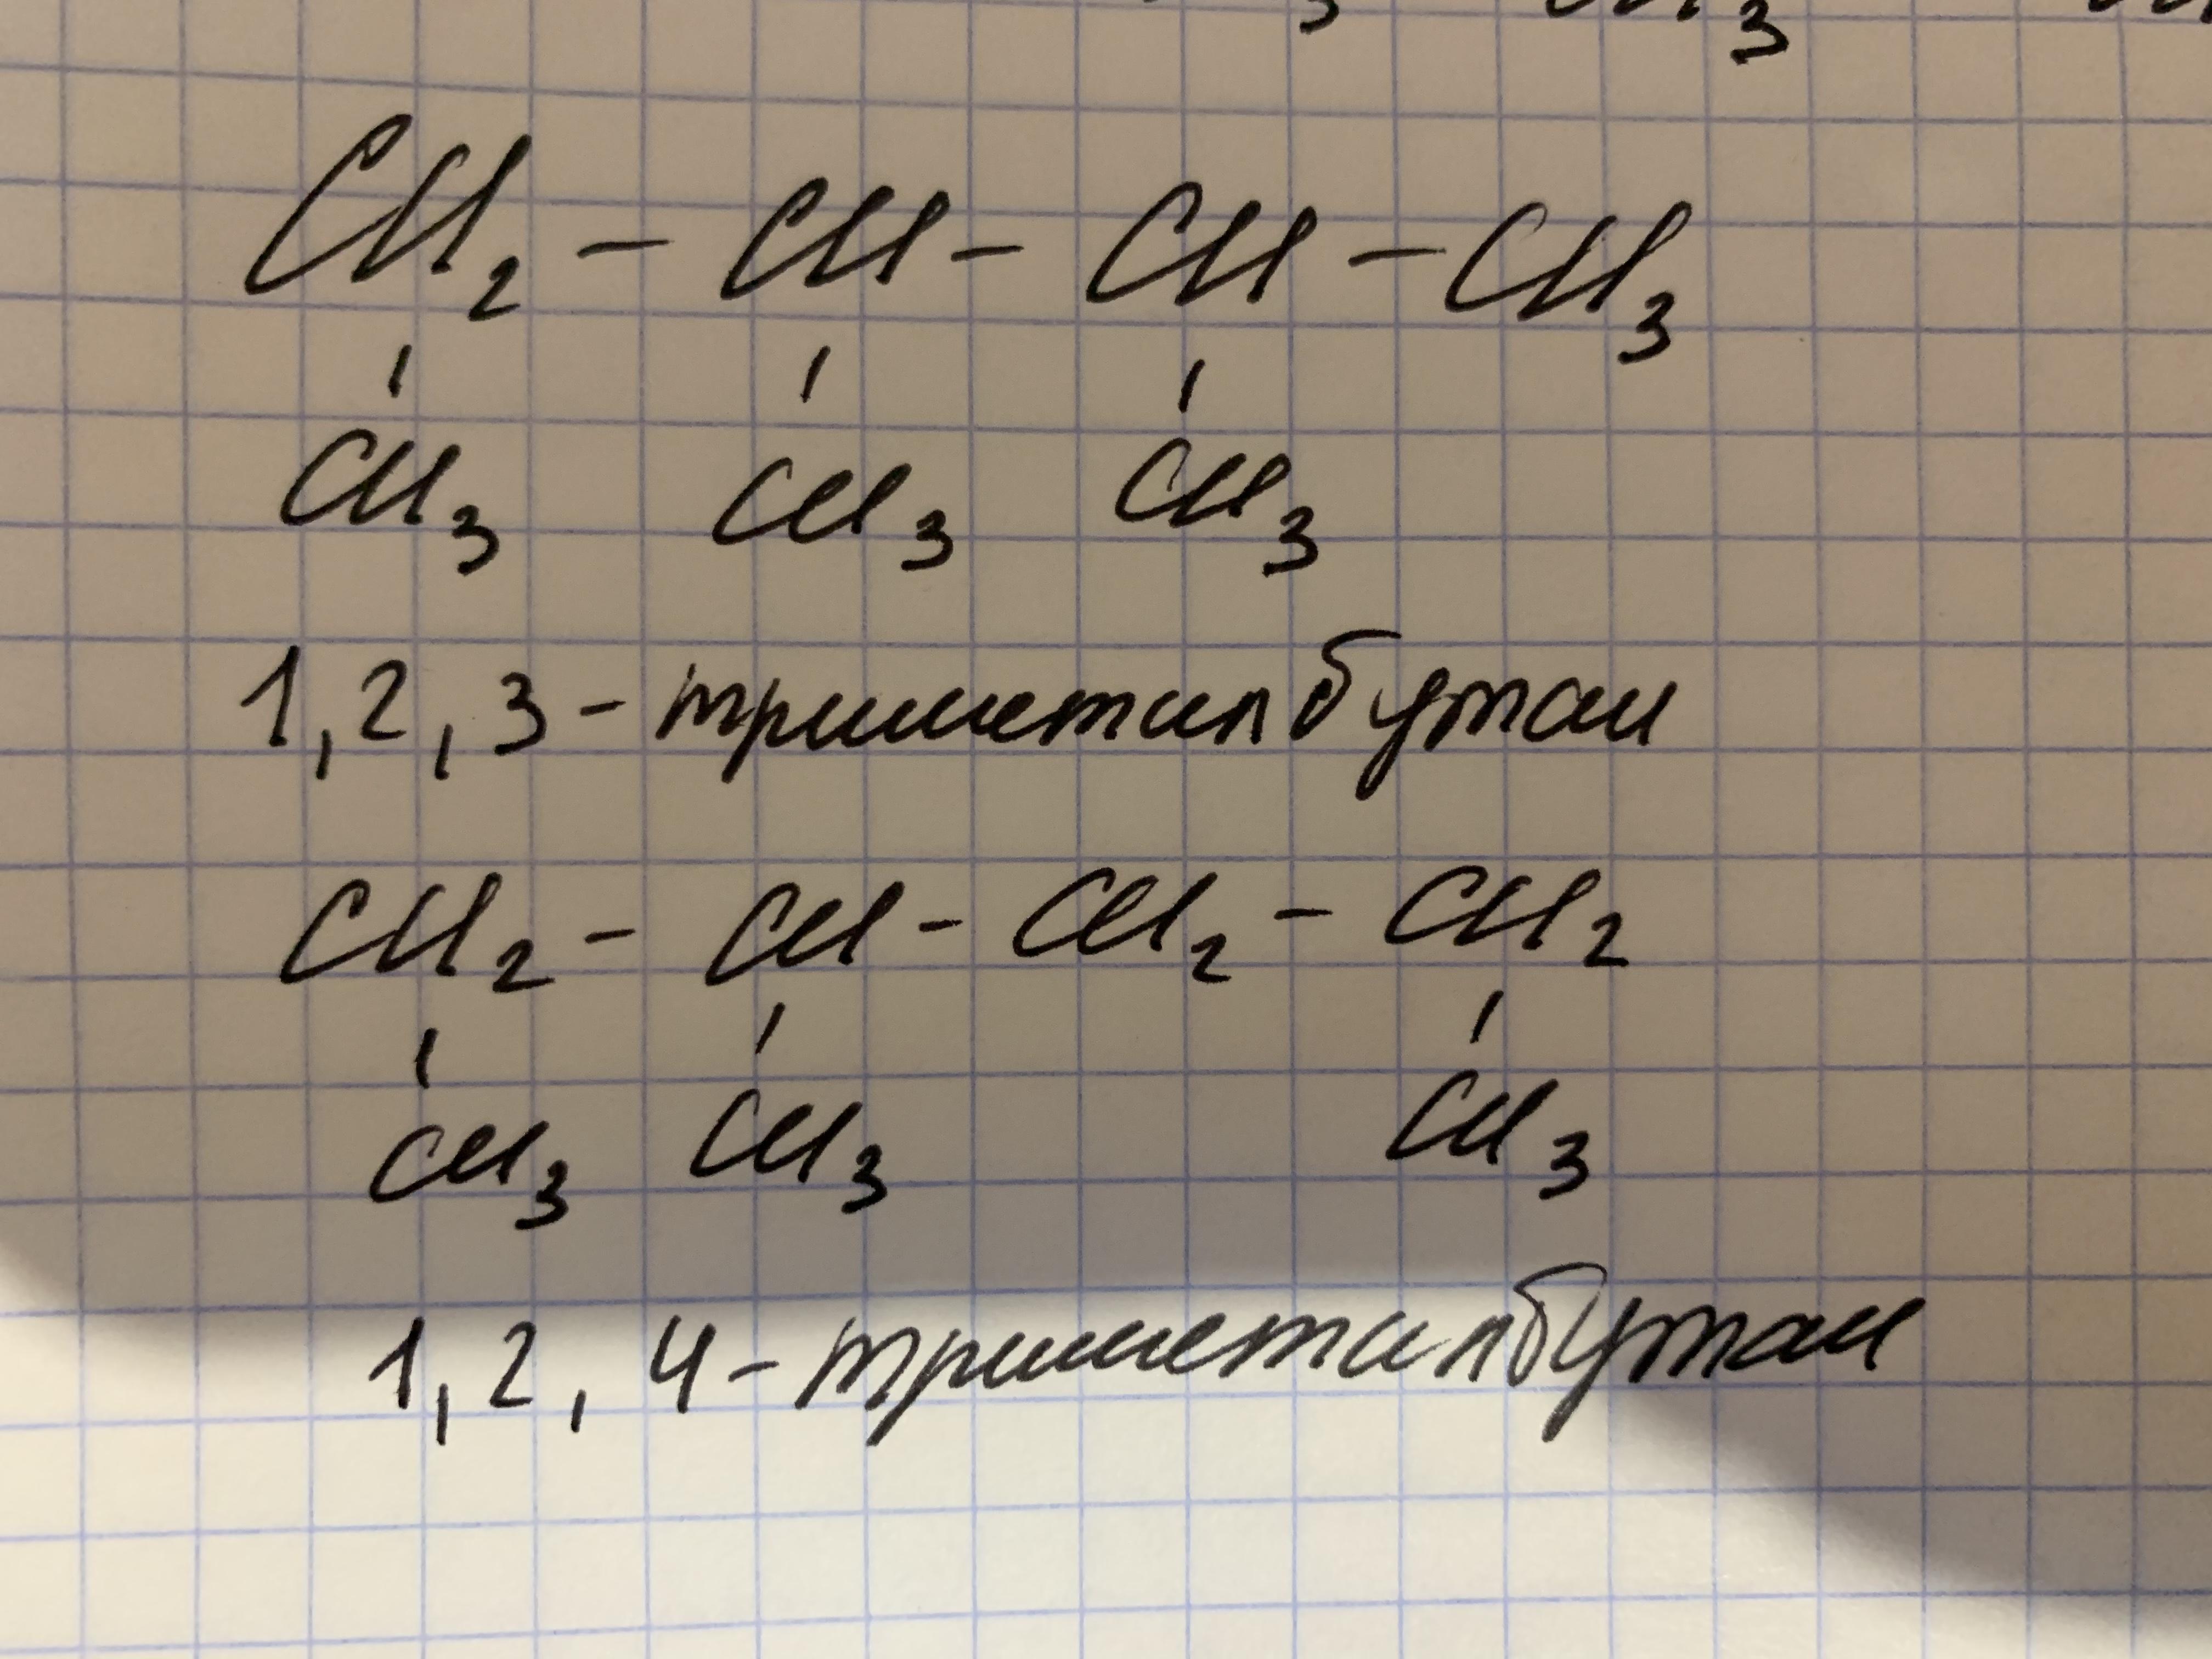 3 CH3
CH2 - CH - CH - CH3
CH3 CH3 CH3
1,2,3 - триметилбутан
CH2 - CH - CH2 - CH2
CH3 CH3 CH3
1,2,4 - триметилбутан